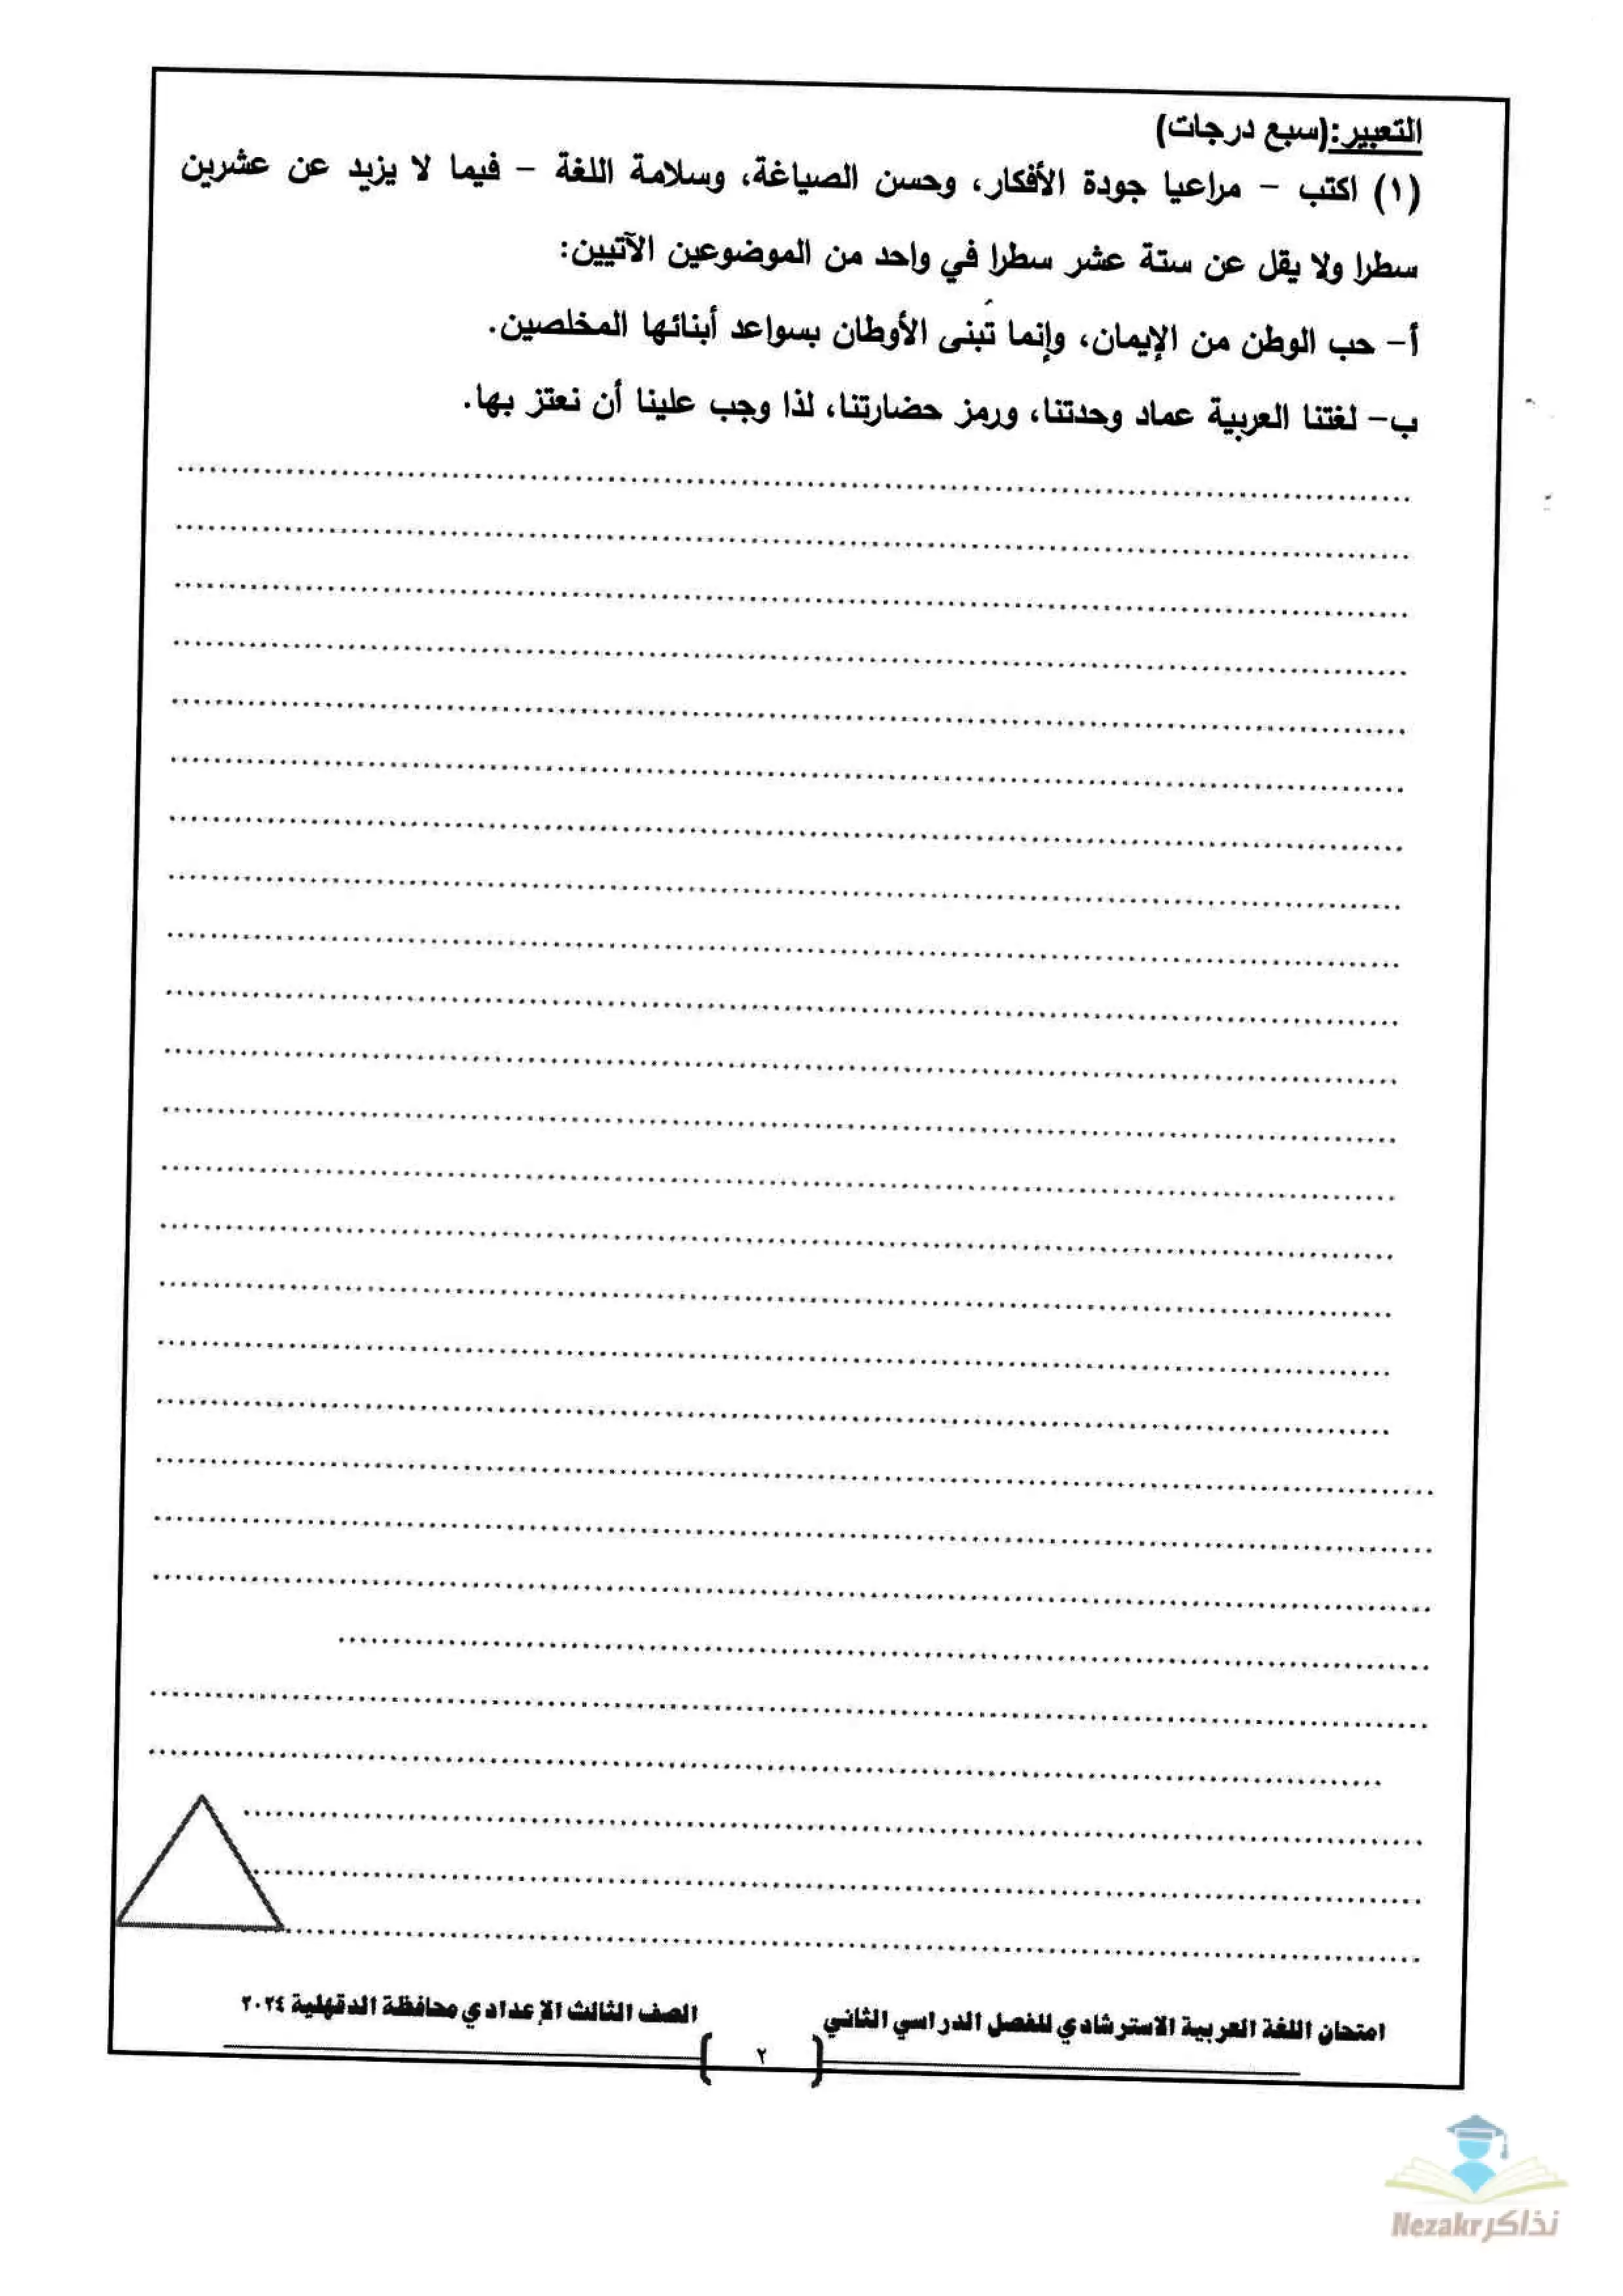 التعبير:(سبع درجات)
(١) اكتب – مراعيا جودة الأفكار، وحسن الصياغة، وسلامة اللغة – فيما لا يزيد عن عشرين
سطرا ولا يقل عن ستة عشر سطرا في واحد من الموضوعين الآتيين:
أ– حب الوطن من الإيمان، وإنما تُبنى الأوطان بسواعد أبنائها المخلصين.
ب– لغتنا العربية عماد وحدتنا، ورمز حضارتنا، لذا وجب علينا أن نعتز بها.
امتحان اللغة العربية الاسترشادي للفصل الدراسي الثاني الصف الثالث الإعدادي محافظة الدقهلية ٢٠٢٤
٢
Nezakr نذاكر